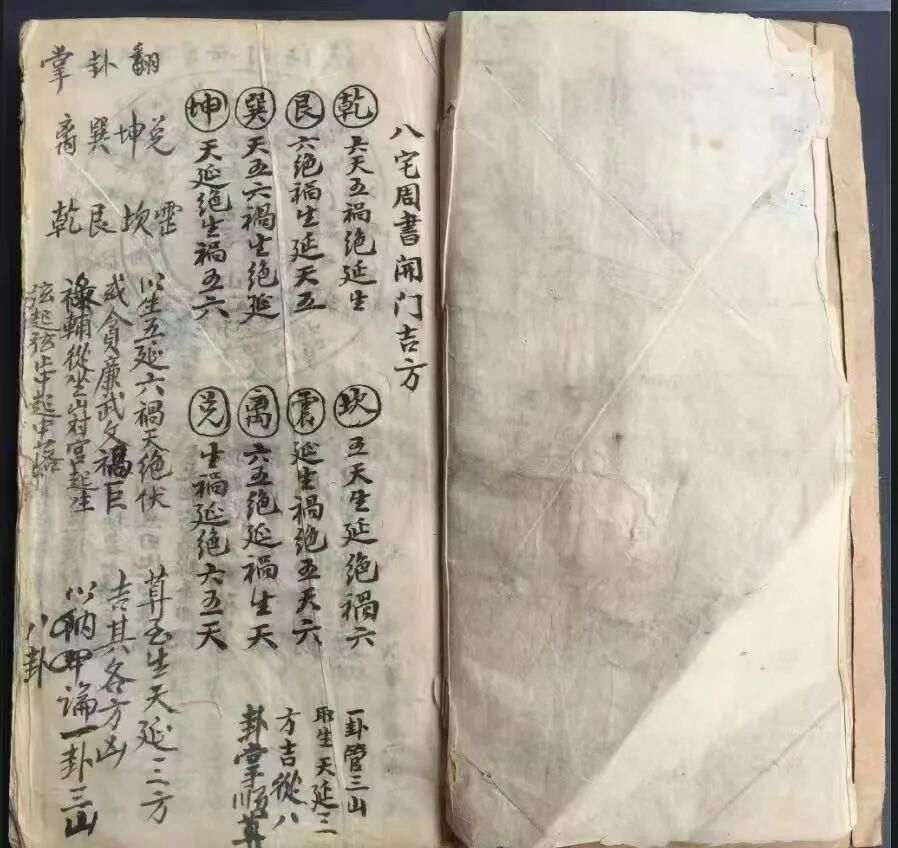 八宅周書開门吉方
乾 六天五禍绝延生
坎 五天生延绝禍六
艮 六绝禍生延天五
震 延生禍绝五天六
巽 天五六禍生绝延
离 六五绝延禍生天
坤 天延绝生禍五六
兑 生禍延绝六五天
一卦管三山
取生天延三
方吉從八
卦掌順算
翻卦掌
兑坤巽离
震坎艮乾
以生五延六禍天绝伏
或貪廉武文禍巨
祿輔從坐山对宫起生
弦起弦止中起中落
算至生天延三方
吉其各方凶
以納甲論一卦三山
八卦